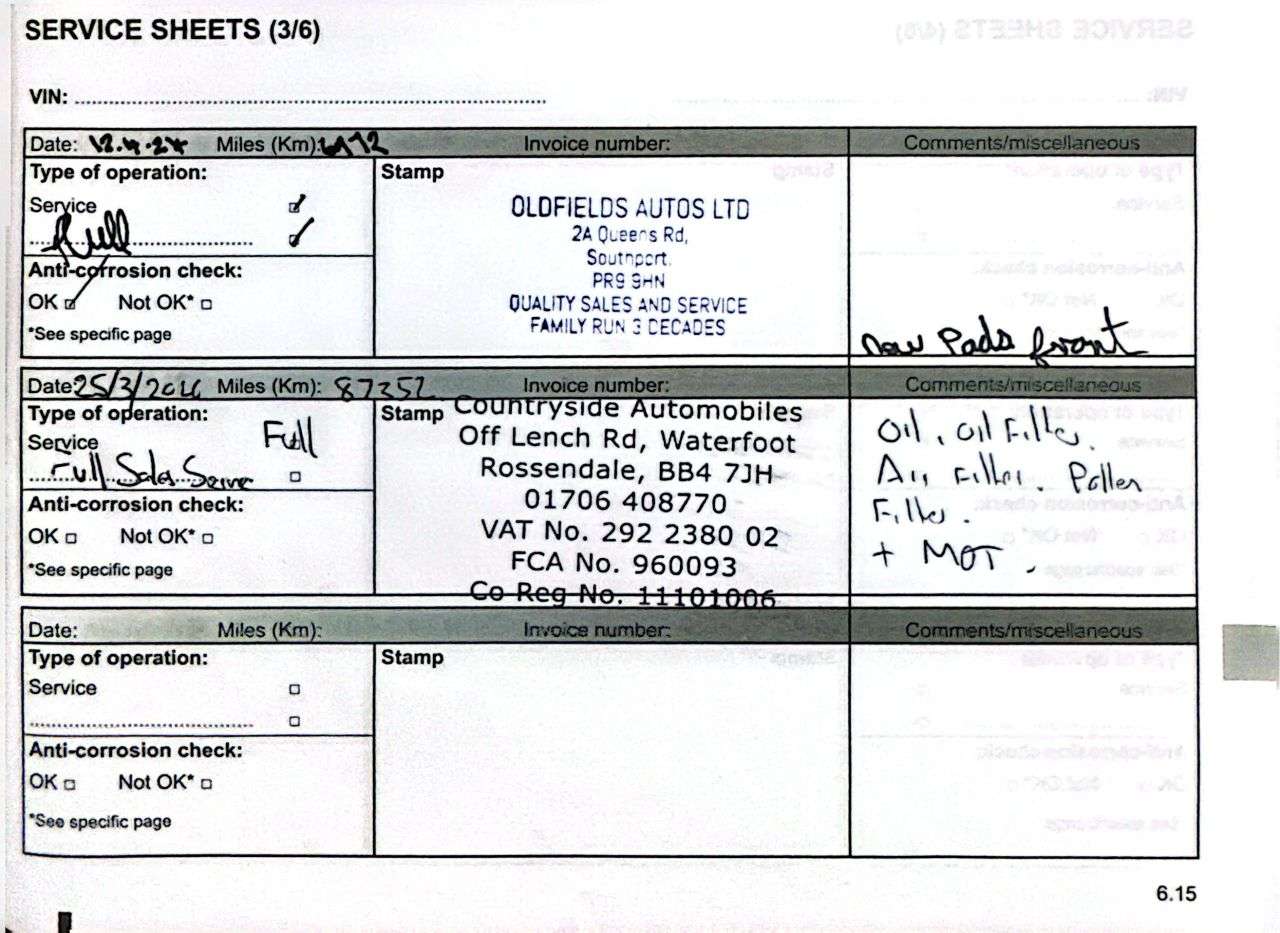 SERVICE SHEETS (3/6)
VIN:
Date: 12.4.24 Miles (Km): Invoice number: Comments/miscellaneous
Type of operation: Stamp
Service
Full
Anti-corrosion check:
OK Not OK*
*See specific page
OLDFIELDS AUTOS LTD
2A Queens Rd,
Southport.
PR9 9HN
QUALITY SALES AND SERVICE
FAMILY RUN 3 DECADES
New Pads front
Date: 25/3/2026 Miles (Km): 87352 Invoice number: Comments/miscellaneous
Type of operation: Stamp
Service Full
Full Sales Service
Anti-corrosion check:
OK Not OK*
*See specific page
Countryside Automobiles
Off Lench Rd, Waterfoot
Rossendale, BB4 7JH
01706 408770
VAT No. 292 2380 02
FCA No. 960093
Co Reg No. 11101006
Oil, Oil Filter.
Air Filter. Pollen
Filter.
+ MOT.
Date: Miles (Km): Invoice number: Comments/miscellaneous
Type of operation: Stamp
Service
Anti-corrosion check:
OK Not OK*
*See specific page
6.15